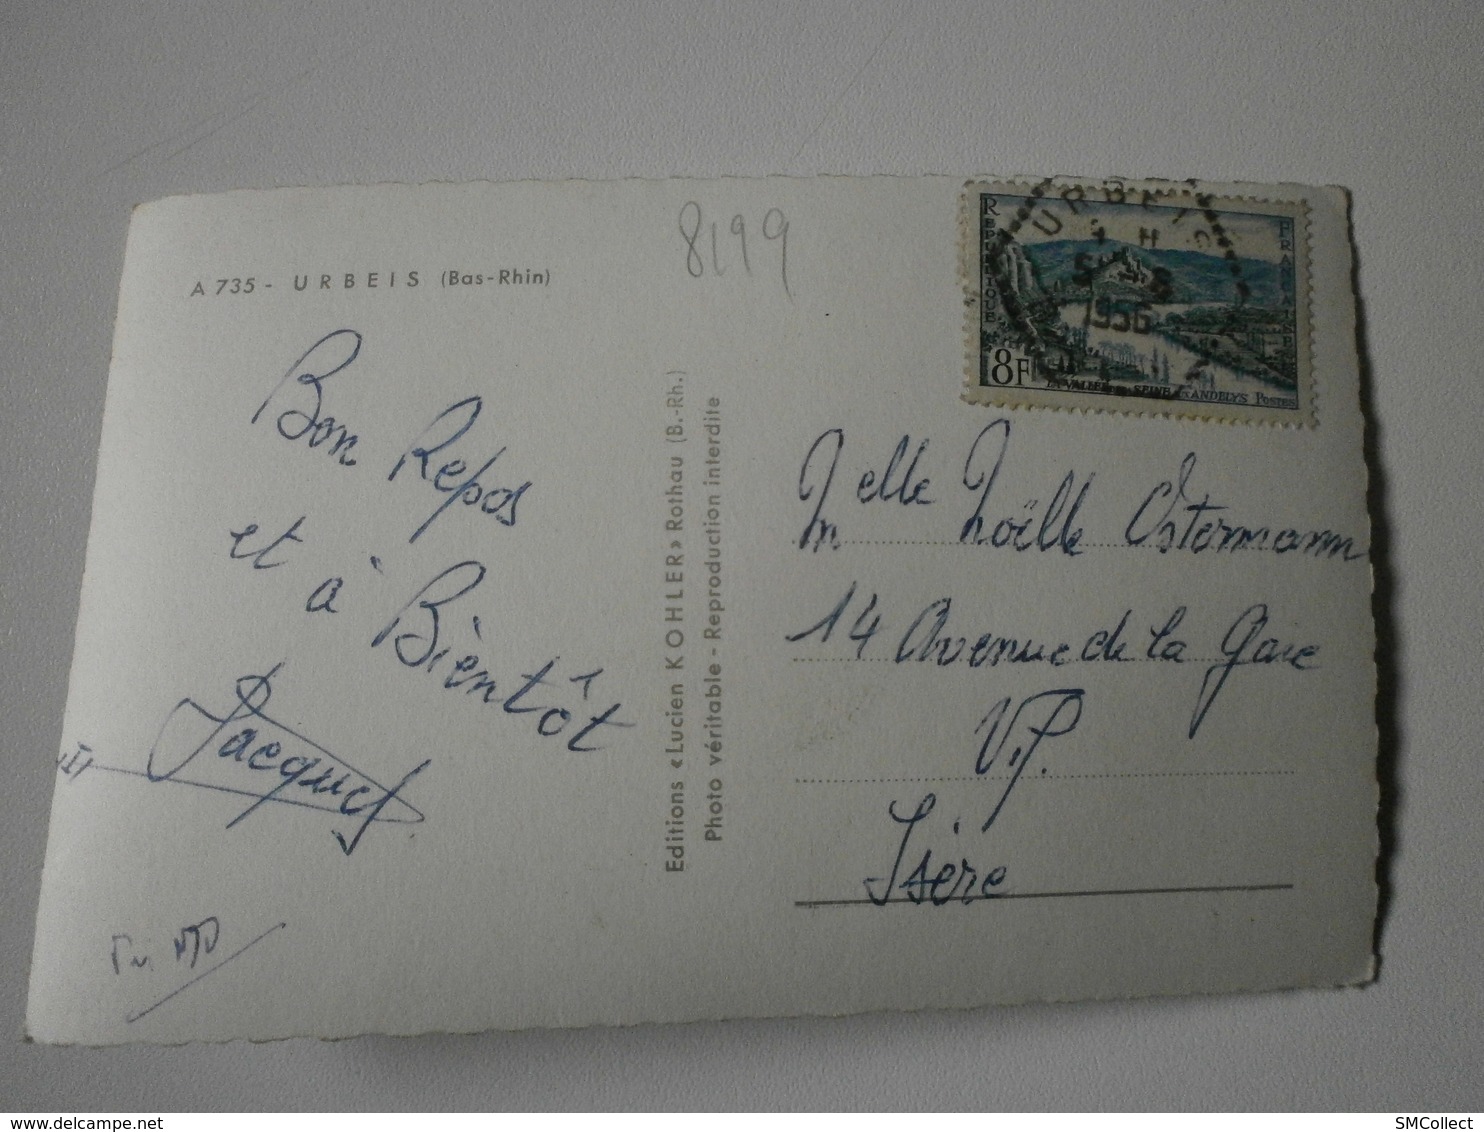 8199
A 735 - URBEIS (Bas-Rhin)
Bon Repos
et
à Bientôt
Jacques
Editions «Lucien KOHLER» Rothau (B.-Rh.)
Photo véritable - Reproduction interdite
REPUBLIQUE
FRANCAISE
URBEIS
1956
8F
LA VALLEE DE LA SEINE AUX ANDELYS POSTES
Melle Noëlle Ostermann
14 Avenue de la Gare
V.P.
Isère
SMCollect